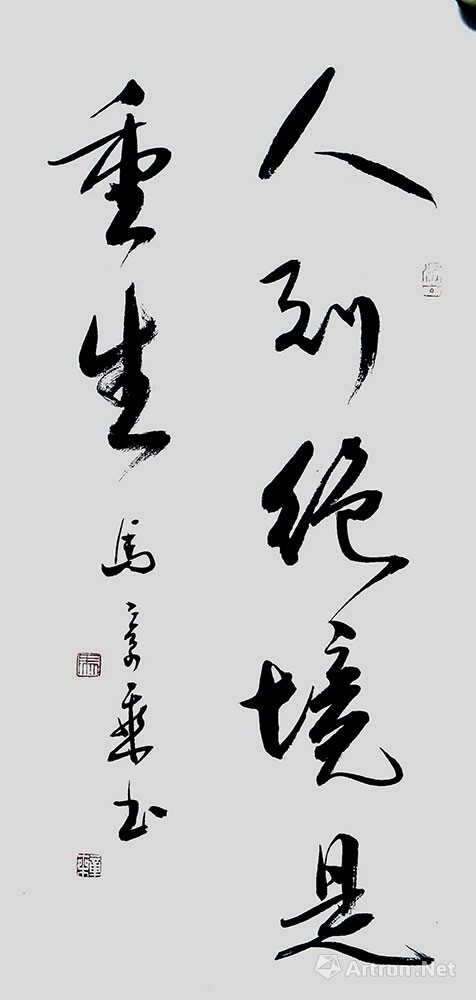 人到绝境是
重生
馬 书
Artron.Net